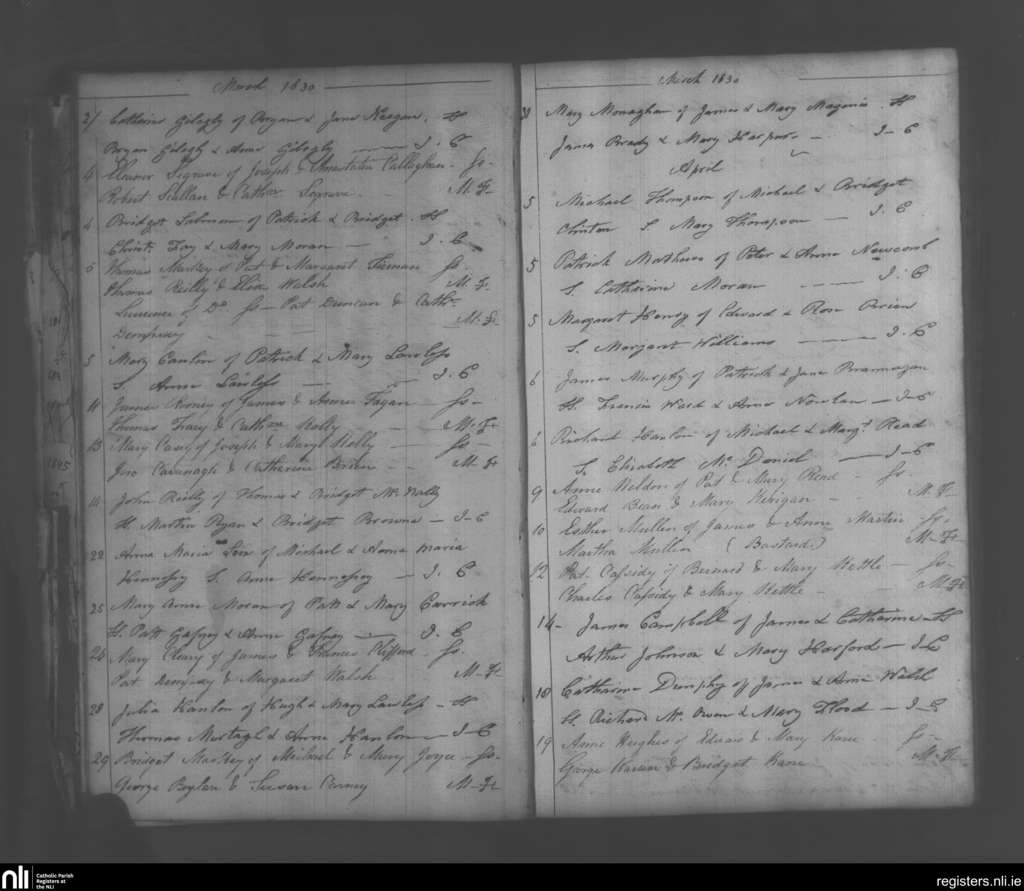 March 1830
21 Catherine Gilogly of Bryan & Jane Keegan. H
Bryan Gilogly & Anne Gilogly — J. C
4 Eleanor Segrave of Joseph & Anastatia Callaghan - Ss-
Robert Scallan & Cathne Segrave - M. Ft
4 Bridget Salmon of Patrick & Bridget. H
Christr. Fay & Mary Moran — J. C
5 Thomas Markey of Pat & Margaret Ss-
Thomas Reilly & Eliza Walsh M. Ft
of Do Ss- Pat Duncan & Cathne
Dempsey — M. Ft
5 Mary Canlon of Patrick & Mary Lawless
S. Anne Lawless — J. C
11 James of James & Anne Fagan - Ss-
Thomas Frary & Cathne Kelly - M. Ft
13 Mary Casey of Joseph & Mary Kelly - Ss-
Jno Cavanagh & Catherine Brien - - M. Ft
14 John Reilly of Thomas & Bridget Mc Nally
H. Martin Ryan & Bridget Browne - J-C
22 Anna Maria of Michael & Anna Maria
Hennessy S. Anne Hennessy — J. C
25 Mary Anne Moran of Patt & Mary Carrick
H. Patt Gafney & Anne Gafney — J. C
26 Mary Cleary of James & Frances Clifford - Ss.
Pat Dempsey & Margaret Walsh M-Ft
28 Julia Hanlon of Hugh & Mary Lawless - H
Thomas Murtagh & Anne Hanlon — J-C
29 Bridget Markey of Michael & Mary Joyce - Ss-
George Boylan & Susan Carney M-Ft
March 1830
31 Mary Monaghan of James & Mary Magenis. H
James Brady & Mary Harper - J-C
April
5 Michael Thompson of Michael & Bridget
Clinton S Mary Thompson — J. C
5 Patrick Mathews of Peter & Anne Newcomb
S. Catharine Moran ---- J. C
5 Margaret Henry of Edward & Rose Brien
S. Margaret Williams ---- J. C
6 James Murphy of Patrick & Jane Brannagan
H. Francis Ward & Anne Nowlan - J-C
6 Richard Hanlon of Michael & Margt. Read
S. Elizabeth Mc Daniel — J-C
9 Anne Weldon of Pat & Mary Read - Ss.
Edward Bean & Mary Kerigan - M. Ft
10 Esther Mullen of James & Anne Martin Ss-
Martha Mullen (Bastard) M-Ft
12 Pat. Cassidy of Bernard & Mary Kettle - Ss-
Charles Cassidy & Mary Kettle - M. Ft
14- James Campbell of James & Catharine - H
Arthur Johnson & Mary Harford - J-C
18 Catharine Dunphy of James & Anne Walsh
H. Richard Mc Owen & Mary Flood - J-C
19 Anne Hughes of Edward & Mary Kane - Ss-
George & Bridget Kane. M-Ft
nli Catholic Parish
Registers at
the NLI
registers.nli.ie